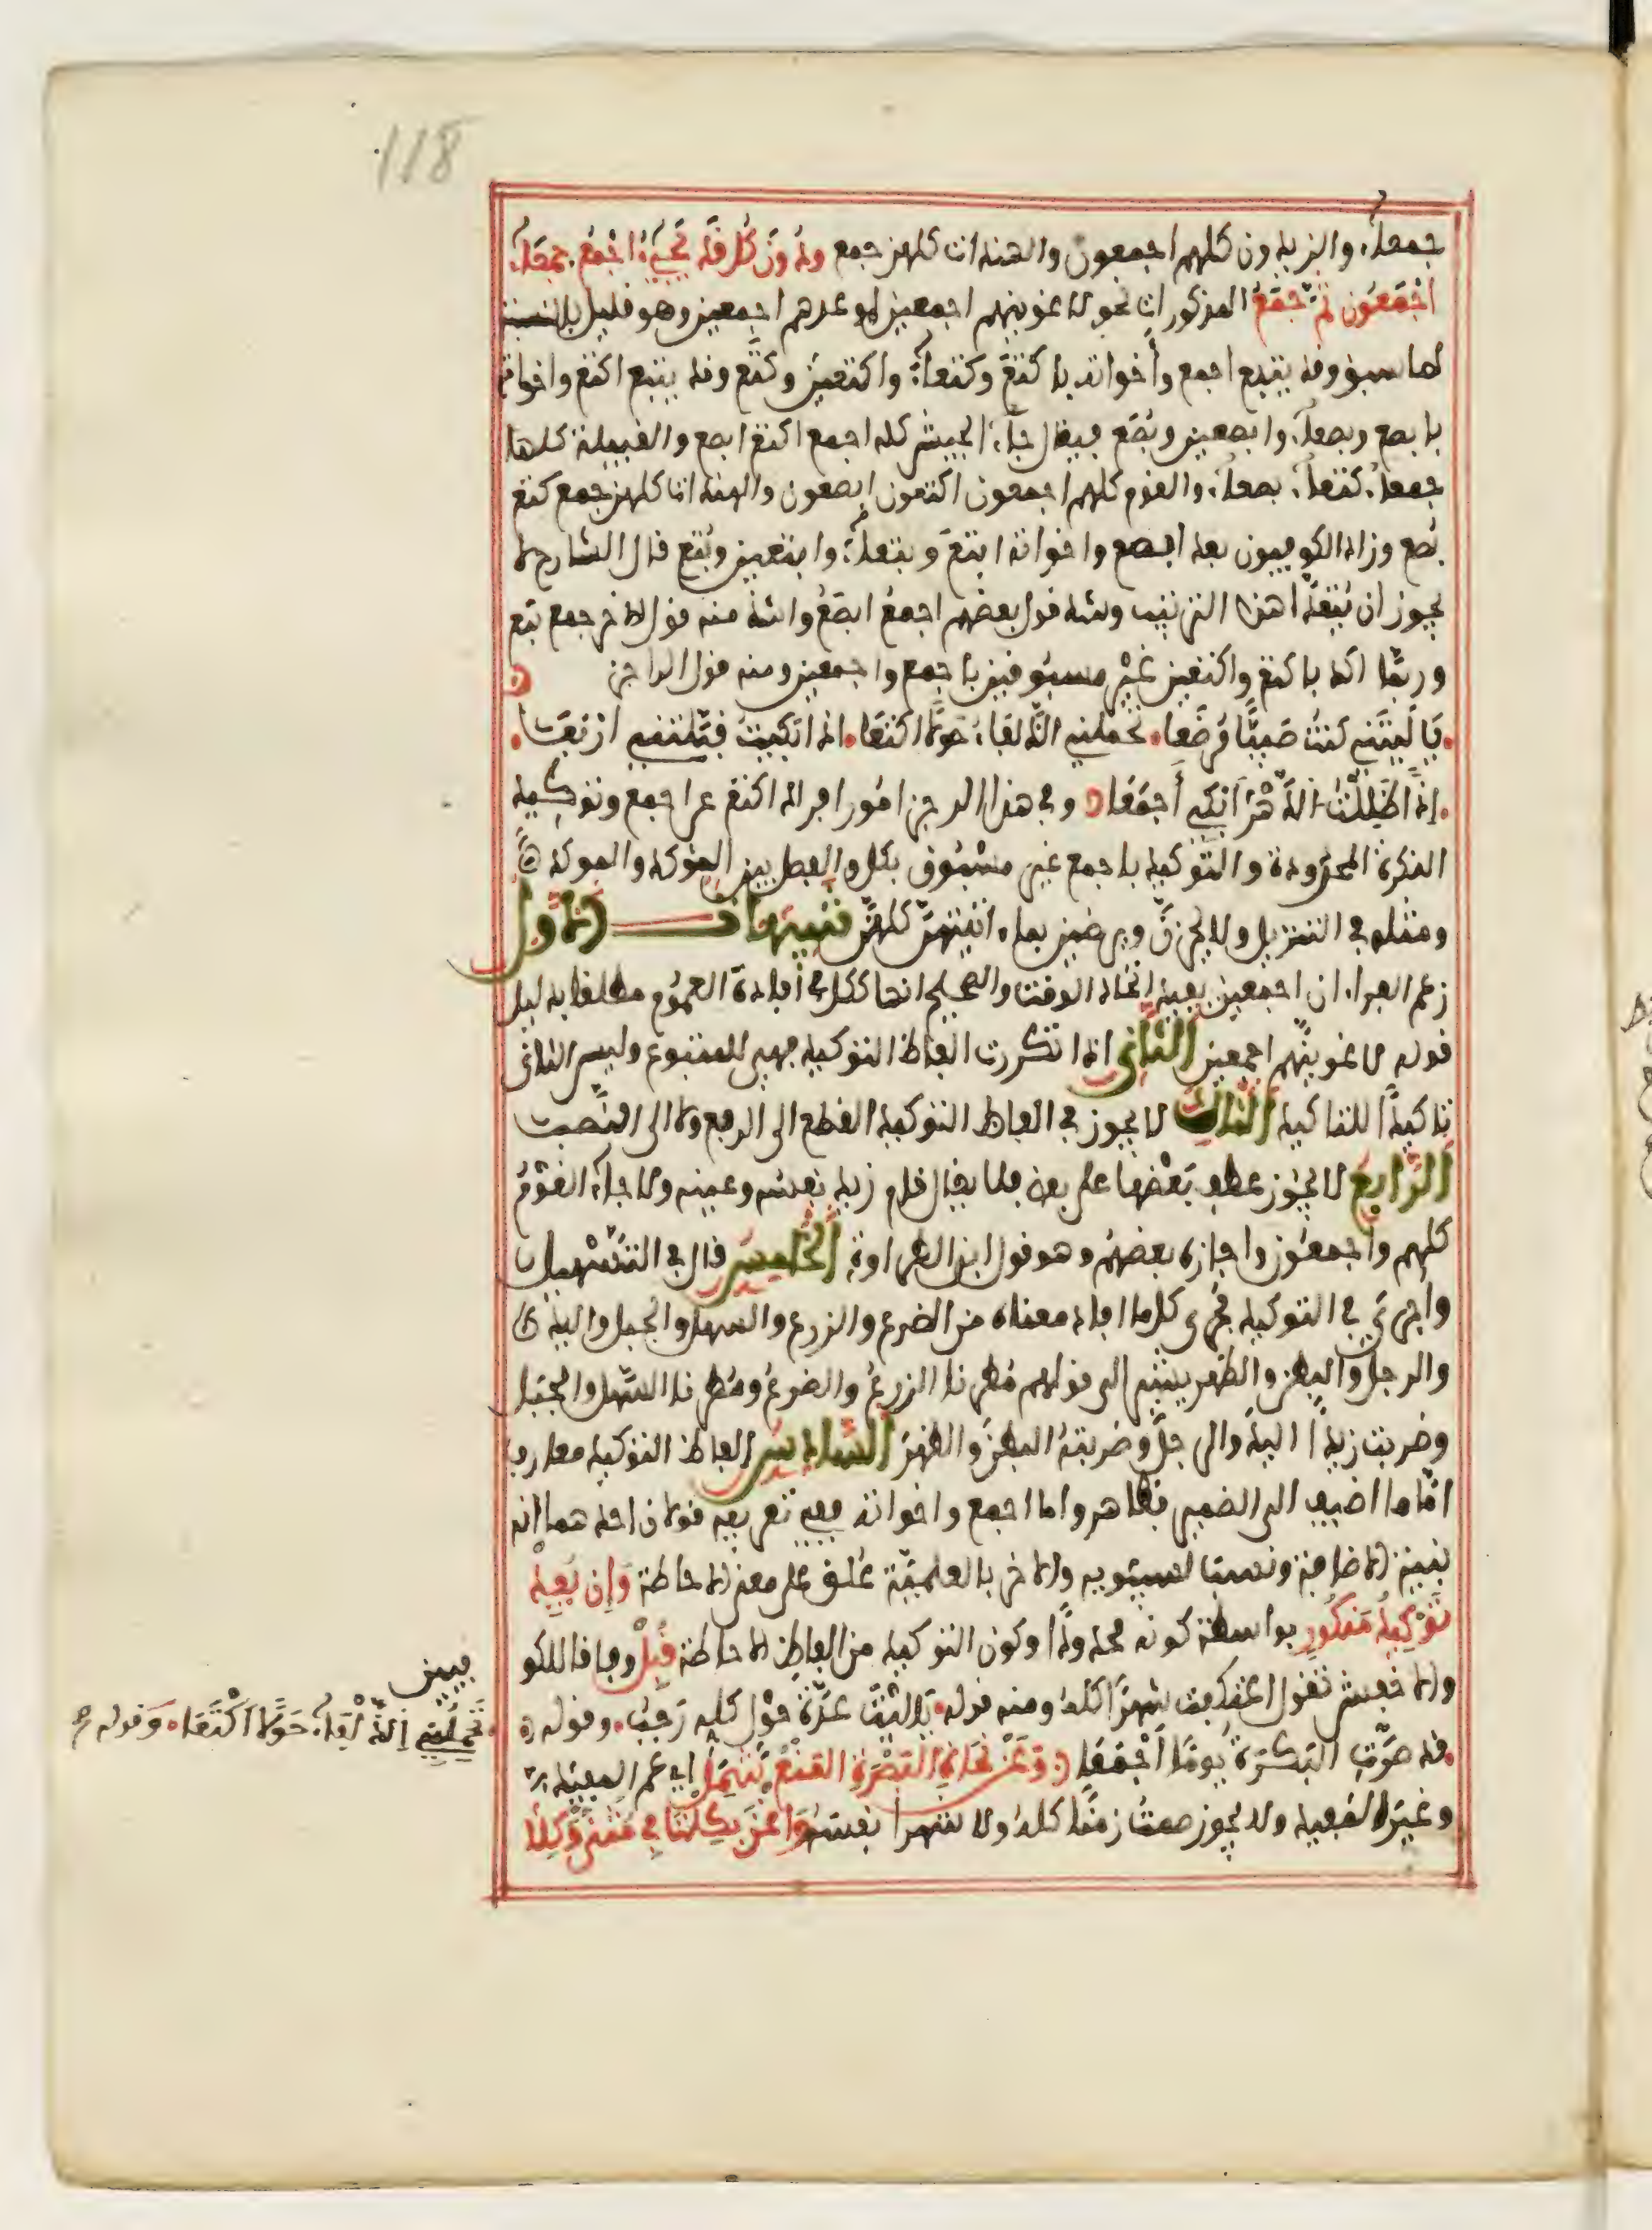 118
جمعاء، والزيدون كلهم اجمعون والهندات كلهن جمع ودون كل قد يجيء اجمع، جمعاء،
اجمعون ثم جمع المذكورات نحو لاغوينهم اجمعين لموعدهم اجمعين وهو قليل بالنسبة
لما سبق وقد يتبع اجمع وأخواته باكتع وكتعاء، واكتعين وكتع وقد يتبع اكتع واخواته
بابصع وبصعاء، وابصعين وبصع فيقال جاء، الجيش كله اجمع اكتع ابصع والقبيلة كلها
جمعاء، كتعاء، بصعاء، والقوم كلهم اجمعون اكتعون ابصعون والهندات كلهن جمع كتع
بصع وزاد الكوفيون بعد ابصع واخواته ابتع وبتعاء، وابتعين وبتع قال الشارح لا
يجوز ان يتعدا هذا الترتيب وشذ قول بعضهم اجمع ابصع واشذ منه قول الاخر جمع بتع
وربما اكد باكتع واكتعين غير مسبوقين باجمع واجمعين ومنه قول الراجز
يا ليتني كنت صبيا مرضعا. تحملني الذلفاء، حولا اكتعا. اذا بكيت قبلتني اربعا.
اذا ظللت الدهر ابكي أجمعا وفي هذا الرجز امور افراد اكتع عن اجمع وتوكيد
النكرة المحدودة والتوكيد باجمع غير مسبوق بكل والفصل بين المؤكد والموكد
ومثله في التنزيل ولا يحزن ويرضين بما، اتيتهن كلهن تنبيهات الاول
زعم الفراء، ان اجمعين يفيد اتحاد الوقت والصحيح انها ككل في افادة العموم مطلقا بدليل
قوله لاغوينهم اجمعين الثاني اذا تكررت الفاظ التوكيد فهي للمتبوع وليس الثاني
تاكيدا للتاكيد الثالث لا يجوز في الفاظ التوكيد القطع الى الرفع ولا الى النصب
الرابع لا يجوز عطف بعضها على بعض فلا يقال قام زيد نفسه وعينه ولا جاء القوم
كلهم واجمعون واجازه بعضهم وهو قول ابن الطراوة الخامس قال في التسهيل
واجري في التوكيد مجرى كل ما افاد معناه من الضرع والزرع والسهل والجبل واليد
والرجل والبطن والظهر يشير الى قولهم مطرنا الزرع والضرع ومطرنا السهل والجبل
وضربت زيدا اليد والرجل وضربته البطن والظهر السادس الفاظ التوكيد معارف
اما ما اضيف الى الضمير فظاهر واما اجمع واخواته ففي تعريفه قولان احدهما انه
بنية الاضافة ونسب لسيبويه والاخر بالعلمية علق على معنى الاحاطة وان يفد
توكيد منكور بواسطة كونه محدودا وكون التوكيد من الفاظ الاحاطة قبل وفاقا للكو
فيين
والاخفش تقول اعتكفت شهرا كله ومنه قوله. يا ليت عدة حول كله رجب. وقوله
تحملني الذلفاء، حولا اكتعا. وقوله
قد صرت البكرة يوما أجمعا وعن نحاة البصرة المنع شمل اي عم المفيد
وغير المفيد ولا يجوز صمت زمنا كله ولا شهرا نفسه واغن بكلتا في مثنى وكلا